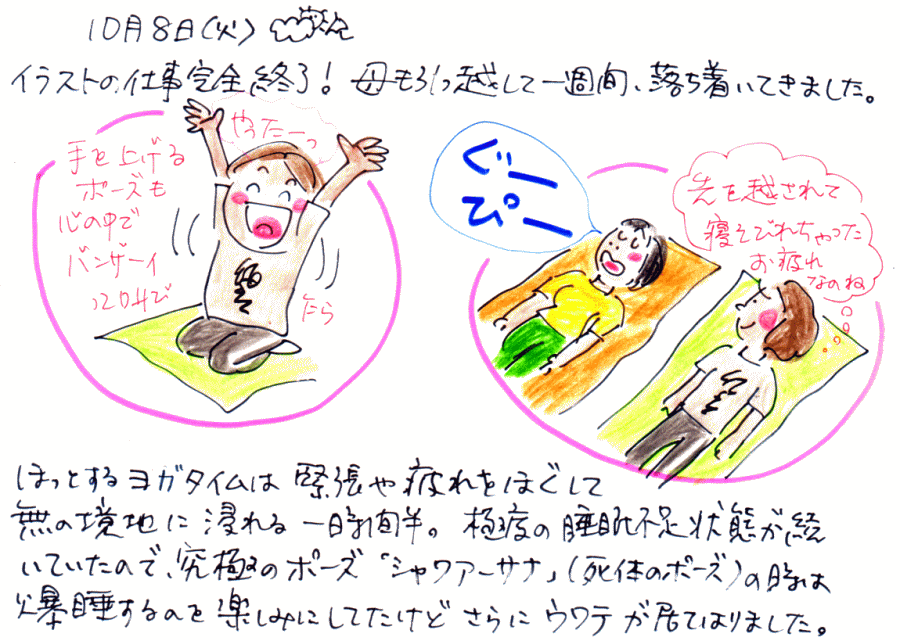 10月8日(火)
イラストの仕事完全終了！母も引っ越して一週間、落ち着いてきました。
やったーっ
手を上げる
ポーズも
心の中で
バンザーイ
たら
ぐー
ぴー
先を越されて
寝そびれちゃった
お疲れ
なのね
ほっとするヨガタイムは緊張や疲れをほぐして
無の境地に浸れる一時間半。極度の睡眠不足状態が続
いていたので、究極のポーズ「シャワアーサナ」(死体のポーズ)の時は
爆睡するのを楽しみにしてたけどさらにウワテが居てはりました。